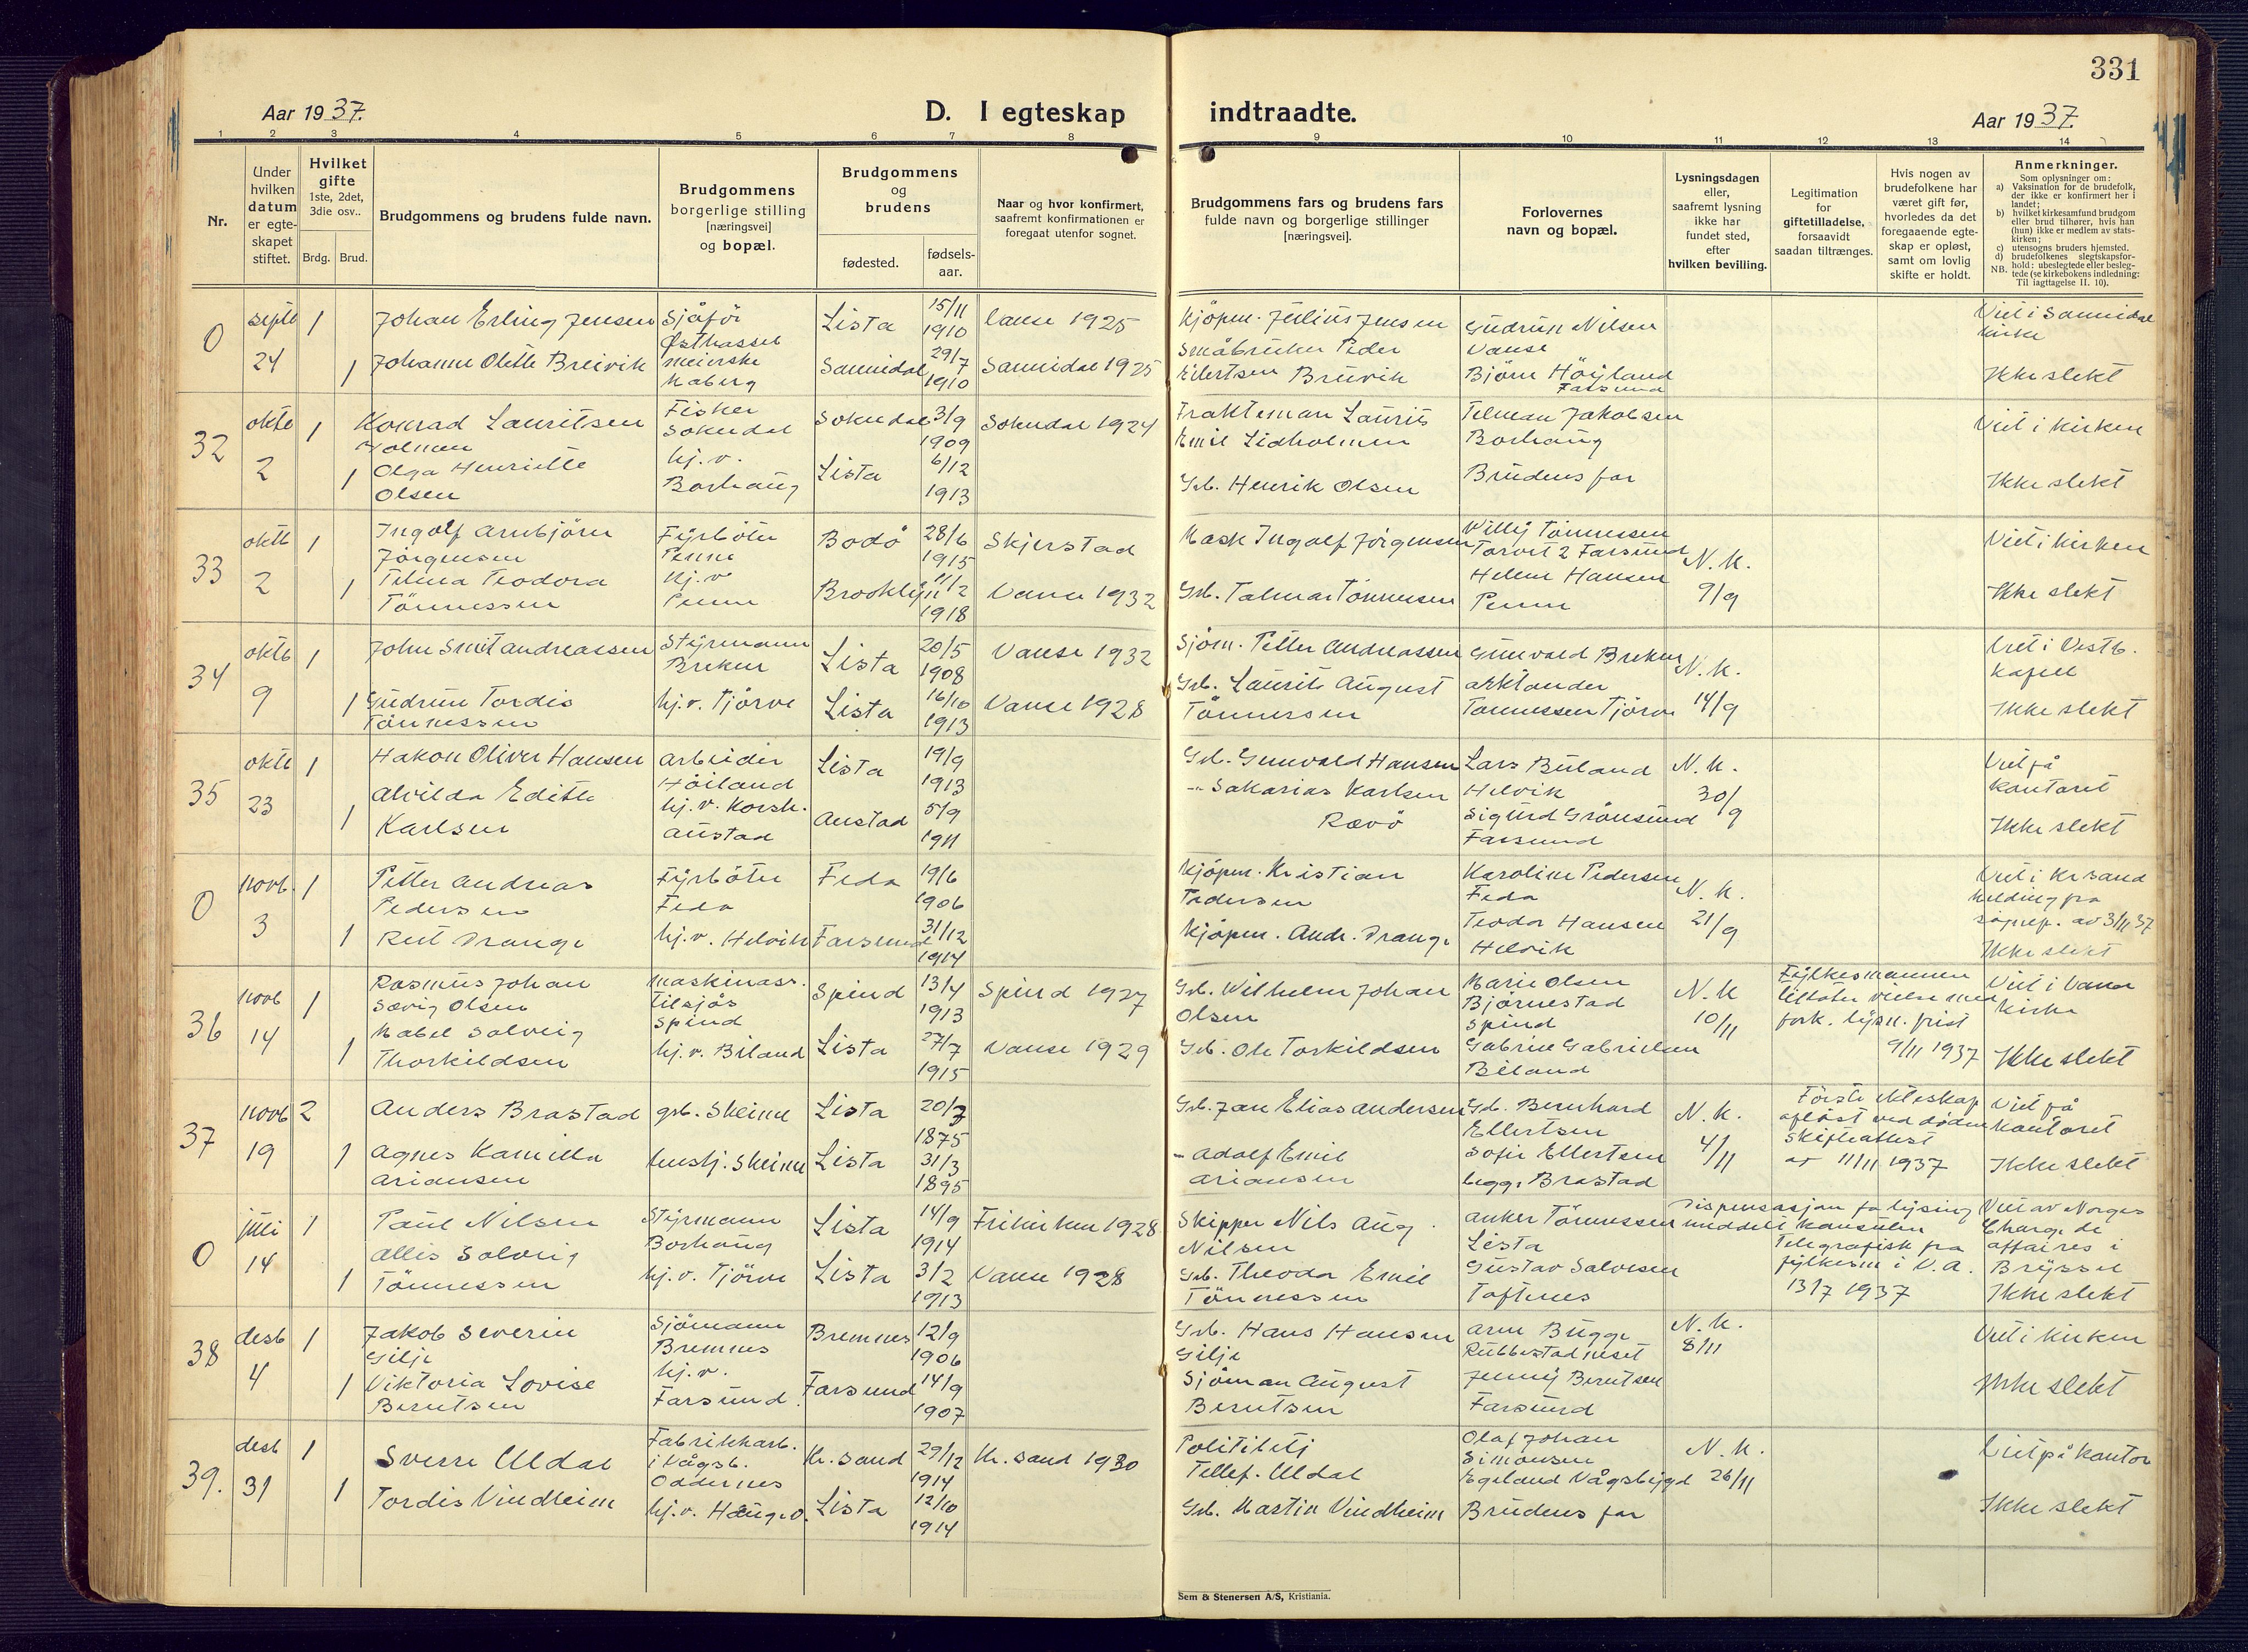 331
Aar 1937.
D. I egteskap
indtraadte.
Aar 1937.
1 2 3 4 5 6 7 8 9 10 11 12 13 14
Nr.
Under
hvilken
datum
er egte-
skapet
stiftet.
Hvilket
gifte
1ste, 2det,
3die osv..
Brdg. Brud.
Brudgommens og brudens fulde navn.
Brudgommens
borgerlige stilling
[næringsvei]
og bopæl.
Brudgommens
og
brudens
fødested.
fødsels-
aar.
Naar og hvor konfirmert,
saafremt konfirmationen er
foregaat utenfor sognet.
Brudgommens fars og brudens fars
fulde navn og borgerlige stillinger
[næringsvei].
Forlovernes
navn og bopæl.
Lysningsdagen
eller,
saafremt lysning
ikke har
fundet sted,
efter
hvilken bevilling.
Legitimation
for
giftetilladelse,
forsaavidt
saadan tiltrænges.
Hvis nogen av
brudefolkene har
været gift før,
hvorledes da det
foregaaende egte-
skap er opløst,
samt om lovlig
skifte er holdt.
Anmerkninger.
Som oplysninger om:
a) Vaksination for de brudefolk,
der ikke er konfirmert her i
landet;
b) hvilket kirkesamfund brudgom
eller brud tilhører, hvis han
(hun) ikke er medlem av stats-
kirken;
c) utensogns bruders hjemsted.
d) brudefolkenes slegtskapsfor-
hold: ubeslegtede eller besleg-
NB. tede (se kirkebokens indledning:
Til iagttagelse II. 10).
0
septb
24
1
Johan Erling Jensen
Sjåfør
Østhassel
Lista
15/11
1910
Vanse 1925
Kjöpm. Julius Jensen
Gudrun Nilsen
Vanse
Viet i Sannidal
kirke
1
Johanne Olette Breivik
meierske
Lista
Sannidal
29/7
1910
Sannidal 1925
Småbruker Peder
Eilertsen Breivik
Björn Höyland
Farsund
Ikke slekt
32
oktb
2
1
Konrad Lauritsen
Holmen
Fisker
Sokndal
Sokndal
3/9
1909
Sokndal 1924
Laurits
Emil Lidholmen
Telman Jakobsen
Borhaug
Viet i kirken
1
Olga Henriette
Olsen
hj. v.
Borhaug
Lista
6/12
1913
Grb. Henrik Olsen
Brudens far
Ikke slekt
33
oktb
2
1
Ingolf Arnbjörn
Jörgensen
Fyrböter
Penne
Bodø
28/6
1915
Skjerstad
Mask Ingolf Jörgensen
Willy Tönnessen
Torvet 2 Farsund
N. K.
9/9
Viet i kirken
1
Telma Teodora
Tönnessen
hj. v
Penne
Brooklyn
11/2
1918
Vanse 1932
Grb. Talmar Tönnesen
Helene Hansen
Penne
Ikke slekt
34
oktb
9
1
John Smit Andreassen
Styrmann
Brekne
Lista
20/5
1908
Vanse 1932
Sjöm. Petter Andreassen
Gunvald Brekne
N. K.
14/9
Viet i Vestb.
kapell
1
Gudrun Tordis
Tönnessen
hj. v. Tjörve
Lista
16/10
1913
Vanse 1928
Grb. Laurits August
Tönnessen
Arklander
Tönnessen Tjörve
Ikke slekt
35
oktb
23
1
Hakon Oliver Hansen
Arbeider
Höiland
Lista
19/9
1913
Grb. Gunvald Hansen
Lars Buland
Helvik
N. K.
30/9
Viet på
kontoret
1
Alvilda Edith
Karlsen
hj. v. Korsh.
Austad
Austad
5/9
1911
-"- Sakarias Karlsen
Rævö
Sigurd Grönsund
Farsund
Ikke slekt
0
novb.
3
1
Petter Andreas
Pedersen
Fyrböter
Feda
Feda
19/6
1906
Kjöpm. Kristian
Pedersen
Karoline Pedersen
Feda
N. K.
21/9
Viet i Kr.sand
melding fra
sognep. av 3/11 37
1
Rut Drange
hj. v. Helvik
Farsund
31/12
1914
Kjöpm. Andr. Drange
Teodor Hansen
Helvik
Ikke slekt
36
novb
14
1
Rasmus Johan
Sævig Olsen
Maskinass.
tilsjøs
Spind
Spind
13/4
1913
Spind 1927
Grb. Wilhelm Johan
Olsen
Marie Olsen
Björnestad
Spind
N. K
10/11
Fylkesmannen
tillater vielse med
fork. lysn. frist
9/11 1937
Viet i Vanse
kirke
1
Mabel Solveig
Thorkildsen
hj. v. Biland
Lista
27/7
1915
Vanse 1929
Grb. Ole Torkildsen
Gabriel Gabrielsen
Biland
Ikke slekt
37
novb
19
2
Anders Brastad
grb. Skeime
Lista
20/3
1875
Grb. Jan Elias Andersen
Grb. Bernhard
Ellertsen
N. K.
4/11
Förste ekteskap
oplöst ved döden
Skifteattest
av 11/11 1937
Viet på
kontoret
1
Agnes Kamilla
Ariansen
hushj. Skeime
Lista
31/3
1895
- Adolf Emil
Ariansen
Sofie Ellertsen
begge Brastad
Ikke slekt
0
juli
14
1
Paul Nilsen
Styrmann
Borhaug
Lista
14/9
1914
Frikirken 1928
Skipper Nils Aug.
Nilsen
Anker Tönnessen
Lista
Dispensasjon fra lysing
meddelt konsulen
Telegrafisk fra
fylkesm i V. A.
13/7 1937
Viet av Norges
Charge de
affaires i
Bryssel
1
Allis Solveig
Tönnessen
hj. v. Tjörve
Lista
3/2
1913
Vanse 1928
Grb. Theodor Emil
Tönnessen
Gustav Salvesen
Toftenes
Ikke slekt
38
desb
4
1
Jakob Severin
Gilje
Sjömann
Bremnes
Bremnes
12/9
1906
Grb. Hans Hansen
Gilje
Arne Bugge
Rubbestadneset
N. K.
8/11
Viet i kirken
1
Viktoria Lovise
Berntsen
hj. v.
Farsund
Farsund
14/9
1907
Sjöman August
Berntsen
Jenny Berntsen
Farsund
Ikke slekt
39.
desb
31
1
Sverre Uldal
Fabrikkarb.
i Vågsb.
Oddernes
Kr. sand
29/12
1914
Kr. sand 1930
Politibetj
Tellef. Uldal
Olaf Johan
Simonsen
Egeland Vågsbygd
N. K.
26/11
Viet på kontor
1
Tordis Vindheim
hj. v. Hauge O.
Lista
12/10
1914
Grb. Martin Vindheim
Brudens far
Ikke slekt
Sem & Stenersen A/S, Kristiania.